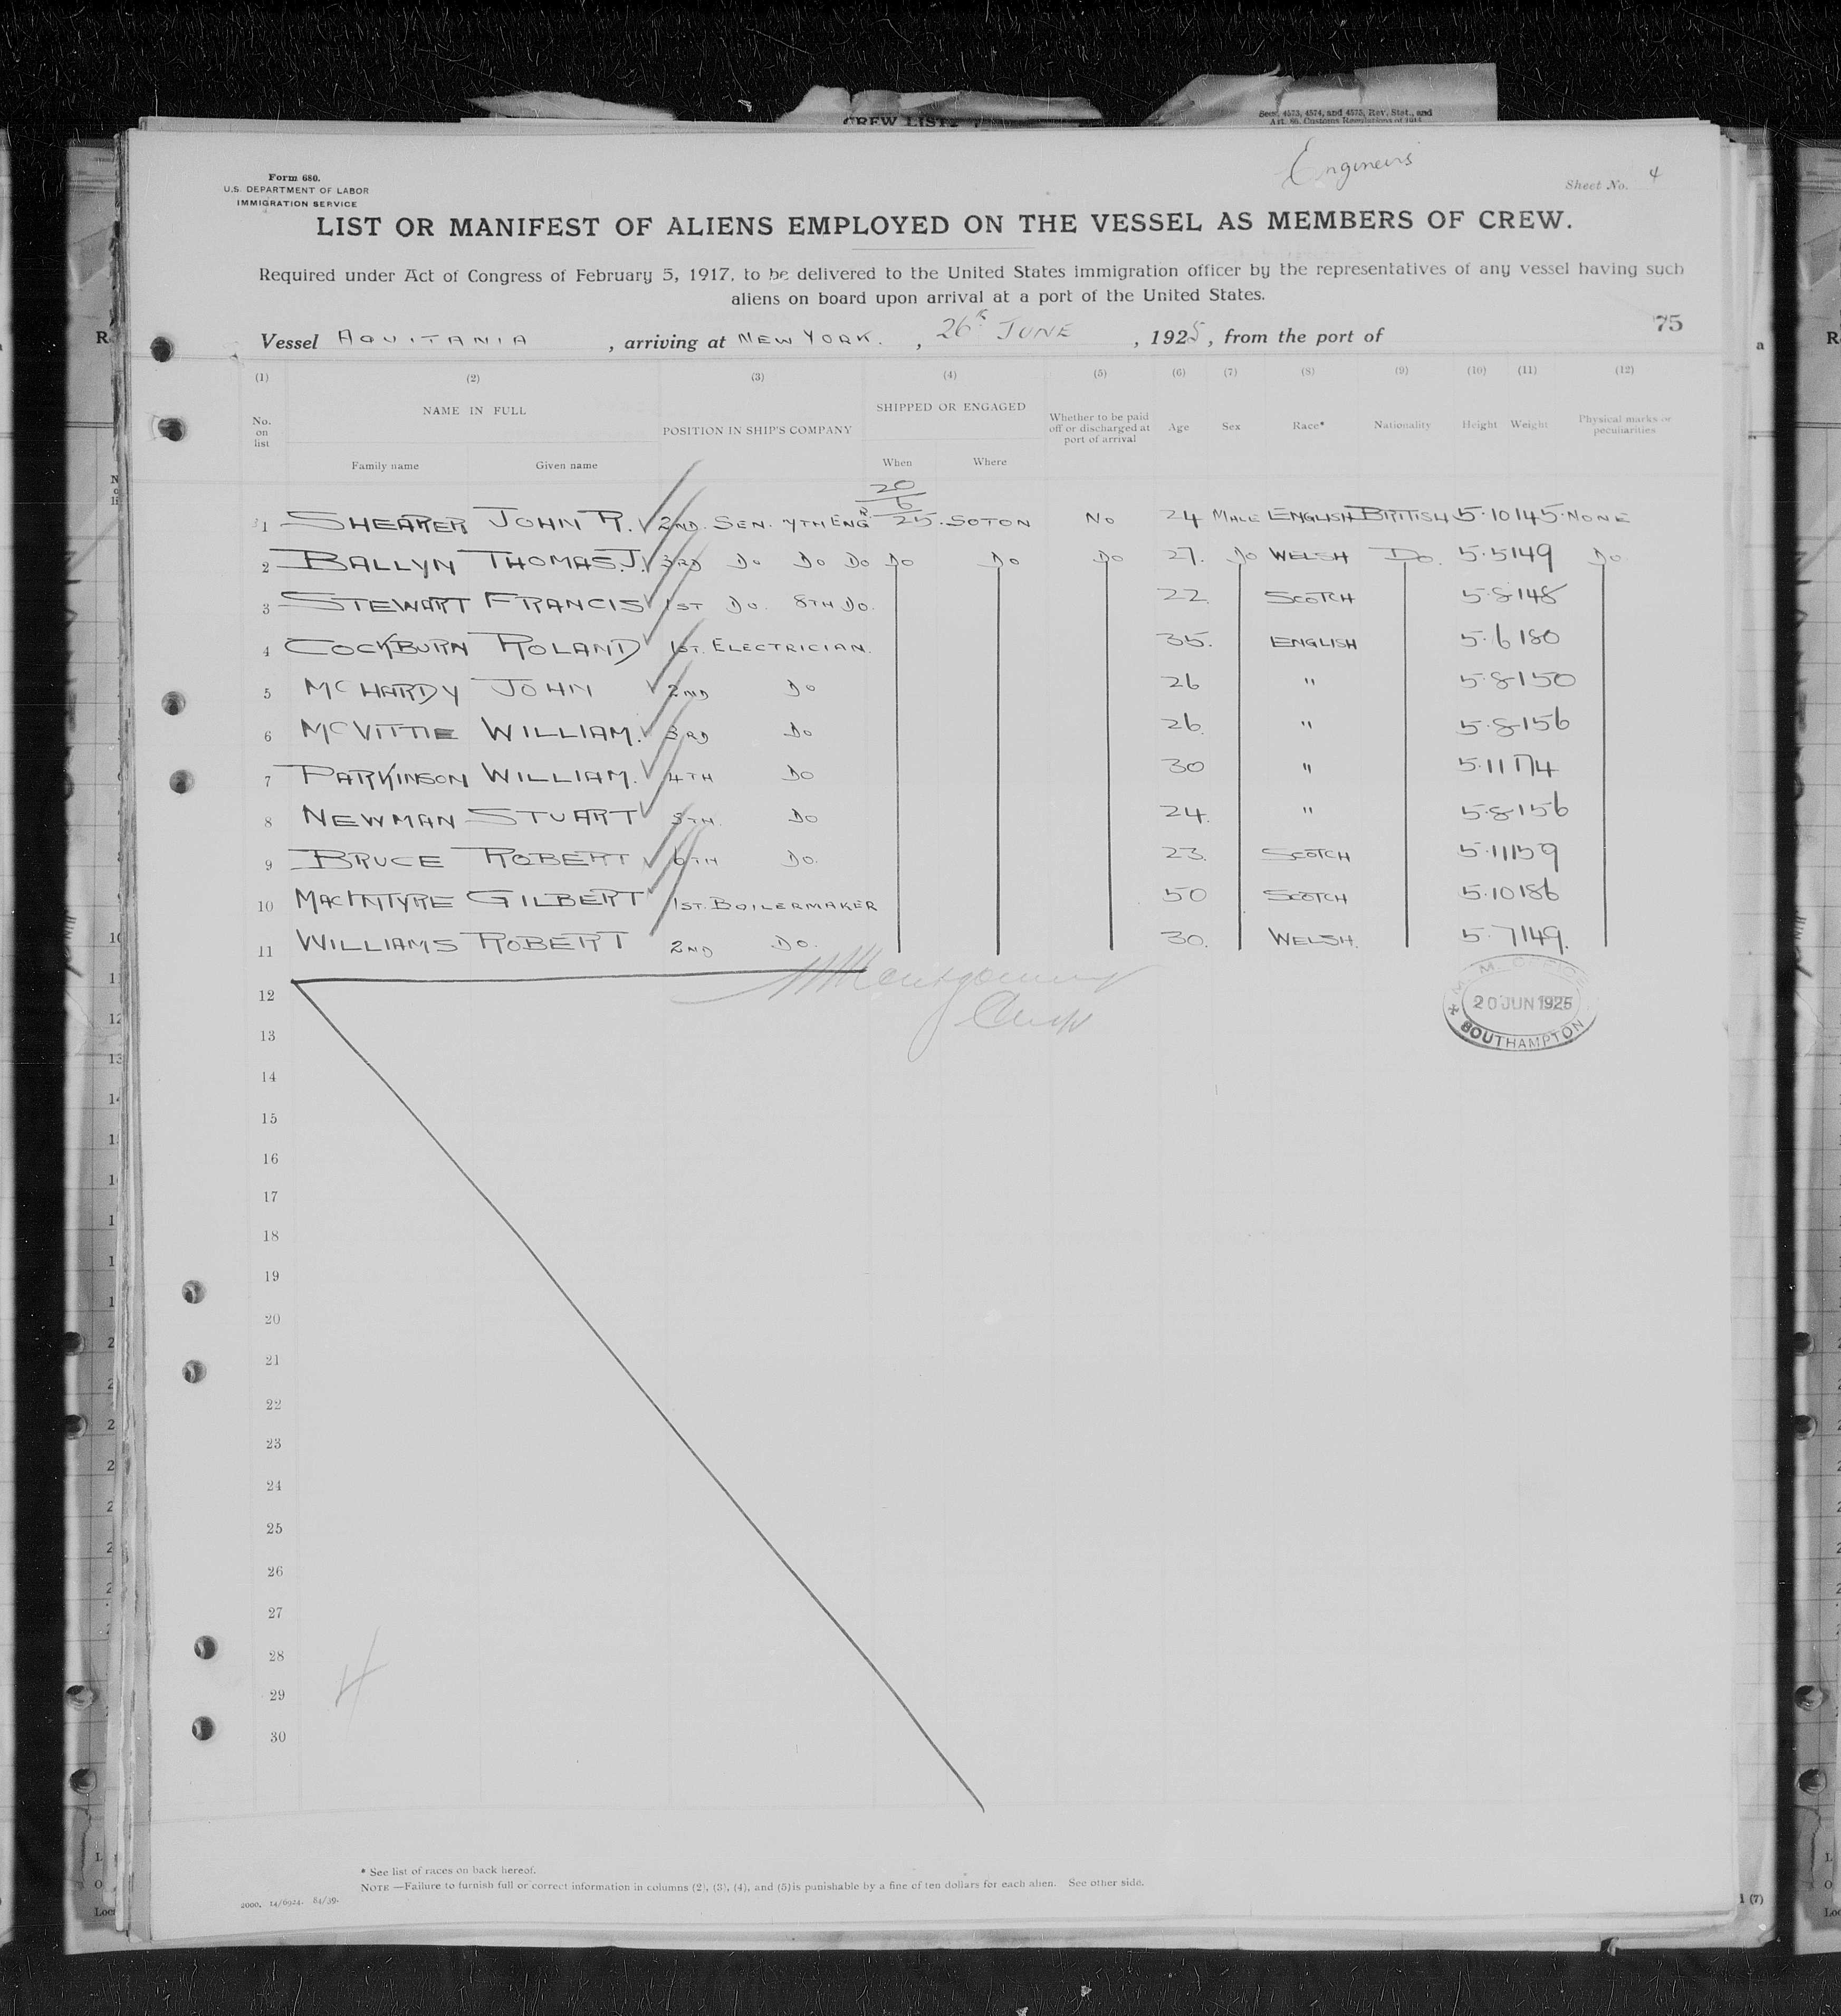 CREW LIST
Secs. 4573, 4574, and 4575, Rev. Stat., and
Art. 60. Customs Regulations of 1915
Engineers
Form 680.
U.S. DEPARTMENT OF LABOR
IMMIGRATION SERVICE
Sheet No. 4
LIST OR MANIFEST OF ALIENS EMPLOYED ON THE VESSEL AS MEMBERS OF CREW.
Required under Act of Congress of February 5, 1917, to be delivered to the United States immigration officer by the representatives of any vessel having such
aliens on board upon arrival at a port of the United States.
Vessel AQUITANIA, arriving at NEW YORK., 26th JUNE, 1925, from the port of
75
(1) (2) (3) (4) (5) (6) (7) (8) (9) (10) (11) (12)
No. on list NAME IN FULL POSITION IN SHIP'S COMPANY SHIPPED OR ENGAGED Whether to be paid off or discharged at port of arrival Age Sex Race* Nationality Height Weight Physical marks or peculiarities
Family name Given name When Where
1 SHEARER JOHN R. 2ND. SEN. 7TH ENGR. 20/6/25. SOTON NO 24 MALE ENGLISH BRITISH 5·10 145· NONE
2 BALLYN THOMAS.J. 3RD DO DO DO DO DO DO 27. DO WELSH DO. 5·5 149 DO
3 STEWART FRANCIS 1ST DO. 8TH DO. 22. SCOTCH 5·8 148
4 COCKBURN ROLAND 1ST. ELECTRICIAN. 35. ENGLISH 5·6 180
5 MCHARDY JOHN 2ND DO 26 " 5·8 150
6 MCVITTIE WILLIAM. 3RD DO 26. " 5·8 156
7 PARKINSON WILLIAM. 4TH DO 30 " 5·11 174
8 NEWMAN STUART 5TH. DO 24. " 5·8 156
9 BRUCE ROBERT 6TH DO. 23. SCOTCH 5·11 159
10 MACINTYRE GILBERT 1ST. BOILERMAKER 50 SCOTCH 5·10 186
11 WILLIAMS ROBERT 2ND DO. 30. WELSH. 5·7 149.
Montgomery
M. M. OFFICE
20 JUN 1925
SOUTHAMPTON
12
13
14
15
16
17
18
19
20
21
22
23
24
25
26
27
28
29
30
4
* See list of races on back hereof.
NOTE —Failure to furnish full or correct information in columns (2), (3), (4), and (5) is punishable by a fine of ten dollars for each alien. See other side.
2000. 14/6924. 84/39.